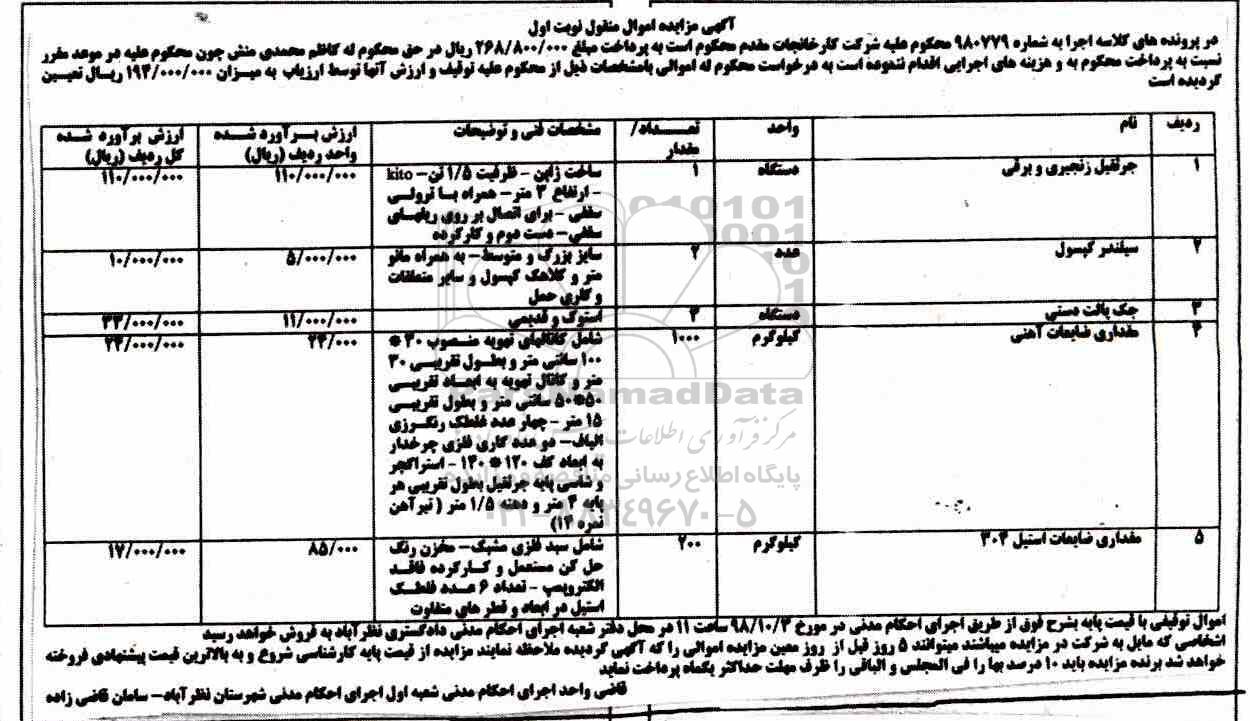 آگهی مزایده اموال منقول نوبت اول
در پرونده های کلاسه اجرا به شماره ۹۸۰۷۷۹ محکوم علیه شرکت کارخانجات مقدم محکوم است به پرداخت مبلغ ۲۶۸/۸۰۰/۰۰۰ ریال در حق محکوم له کاظم محمدی منش چون محکوم علیه در موعد مقرر
نسبت به پرداخت محکوم به و هزینه های اجرایی اقدام ننموده است به درخواست محکوم له اموالی بامشخصات ذیل از محکوم علیه توقیف و ارزش آنها توسط ارزیاب به میزان ۱۹۴/۰۰۰/۰۰۰ ریال تعیین
گردیده است
ردیف نام واحد تعداد/ مقدار مشخصات فنی و توضیحات ارزش برآورد شده واحد ردیف (ریال) ارزش برآورد شده کل ردیف (ریال)
۱ جرثقیل زنجیری و برقی دستگاه ۱ ساخت ژاپن - ظرفیت ۱/۵ تن – kito ۱۱۰/۰۰۰/۰۰۰ ۱۱۰/۰۰۰/۰۰۰
- ارتفاع ۳ متر – همراه با ترولی
سقفی - برای اتصال بر روی ریلهای
سقفی – دست دوم و کارکرده
۲ سیلندر کپسول عدد ۲ سایز بزرگ و متوسط – به همراه مانو ۵/۰۰۰/۰۰۰ ۱۰/۰۰۰/۰۰۰
متر و کلاهک کپسول و سایر متعلقات
و گاری حمل
۳ جک پالت دستی دستگاه ۳ استوک و قدیمی ۱۱/۰۰۰/۰۰۰ ۳۳/۰۰۰/۰۰۰
۴ مقداری ضایعات آهنی کیلوگرم ۱۰۰۰ شامل کانالهای تهویه منصوب ۳۰ * ۲۴/۰۰۰ ۲۴/۰۰۰/۰۰۰
۱۰۰ سانتی متر و بطول تقریبی ۳۰
متر و کانال تهویه به ابعاد تقریبی
۵۰*۵۰ سانتی متر و بطول تقریبی
۱۵ متر - چهار عدد غلطک رنگرزی
الیاف – دو عدد گاری فلزی چرخدار
به ابعاد کف ۱۲۰ * ۱۲۰ - استراکچر
و شاسی پایه جرثقیل بطول تقریبی هر
پایه ۴ متر و دهنه ۱/۵ متر ( تیرآهن
نمره ۱۴)
۵ مقداری ضایعات استیل ۳۰۴ کیلوگرم ۲۰۰ شامل سبد فلزی مشبک – مخزن رنگ ۸۵/۰۰۰ ۱۷/۰۰۰/۰۰۰
حل کن مستعمل و کارکرده فاقد
الکتروپمپ - تعداد ۶ عدد غلطک
استیل در ابعاد و قطر های متفاوت
اموال توقیفی با قیمت پایه بشرح فوق از طریق اجرای احکام مدنی در مورخ ۹۸/۱۰/۳ ساعت ۱۱ در محل دفتر شعبه اجرای احکام مدنی دادگستری نظرآباد به فروش خواهد رسید
اشخاصی که مایل به شرکت در مزایده میباشند میتوانند ۵ روز قبل از روز معین مزایده اموالی را که آگهی گردیده ملاحظه نمایند مزایده از قیمت پایه کارشناسی شروع و به بالاترین قیمت پیشنهادی فروخته
خواهد شد برنده مزایده باید ۱۰ درصد بها را فی المجلس و الباقی را ظرف مهلت حداکثر یکماه پرداخت نماید
قاضی واحد اجرای احکام مدنی شعبه اول اجرای احکام مدنی شهرستان نظرآباد – سامان قاضی زاده